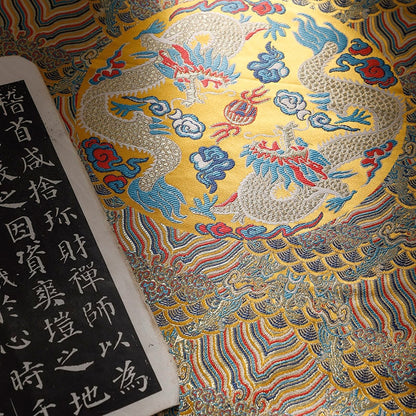 稽首咸捨珎財禪師以為
之因資爽塏之地
於心時